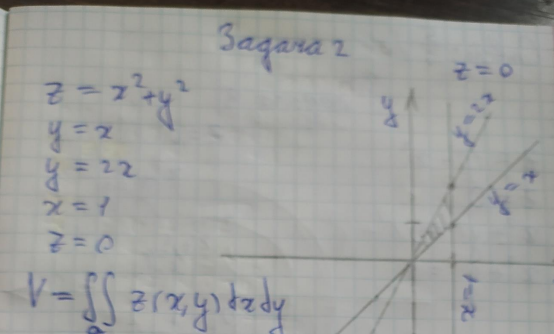 Задача 2
z = x² + y²
y = x
y = 2x
x = 1
z = 0
V = ∬ z(x,y) dx dy
z = 0
y
y = 2x
y = x
x = 1